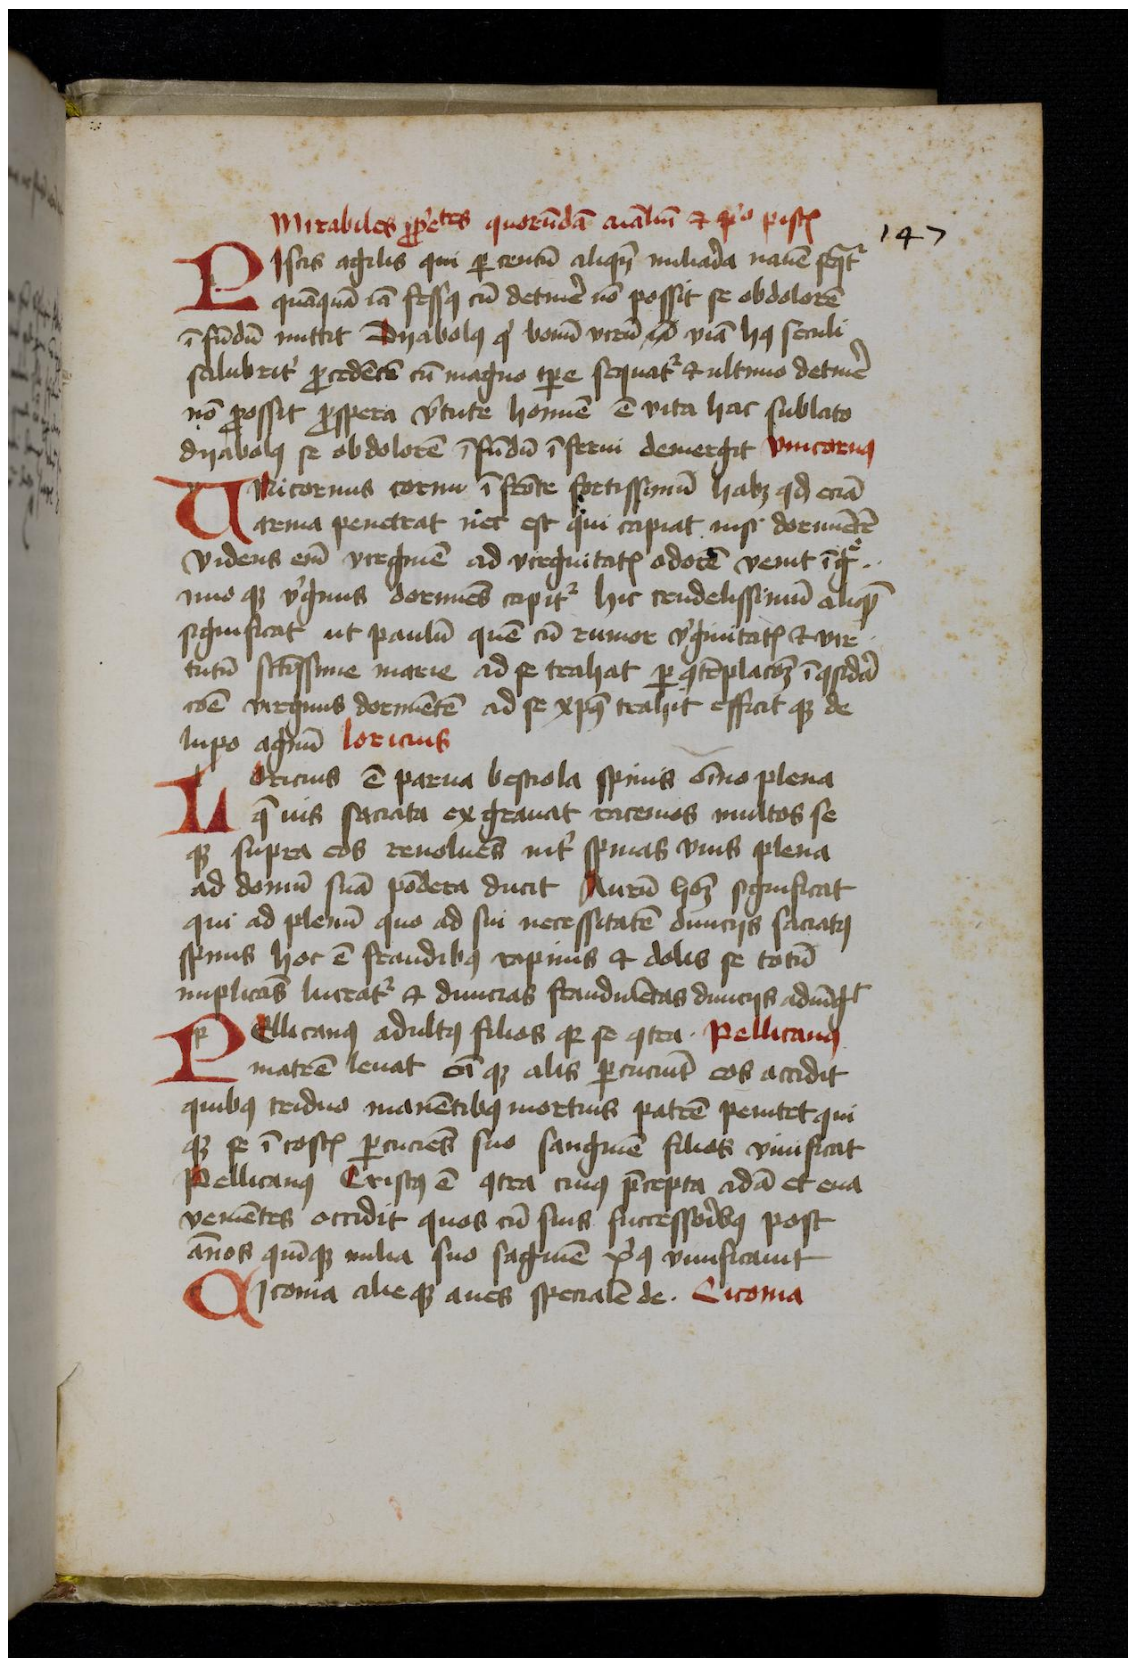 Mirabiles ꝓp̄etes quorūdā aīaliū ⁊ pͦ pisc̄
147
PIscis agilis qui ꝑ centū aliqn̄ miliaria nauē seqͭ
quāquā iā fessꝰ cū detinēr nō possit se ob dolorē
ī fūdū mittit Dyabolꝰ qͥ bonū virū viā hꝰ seculi
salubritͬ ꝓcedētē cū magno tꝑe sequatͬ ⁊ ultimo detinēr
nō possit ꝓspera v̓tute hominē ē vita hac sublato
dyabolꝰ se ob dolorē ī fūdū īferni demergit Vnicornꝰ
VNicornus cornu ī frōte fortissimū habꝫ qd̄ eciā
arma penetrat nec est qui capiat nisi dormiētē
Videns em̄ virginē ad virginitatꝭ odorē venit ī gͤ
mio qꝫ v̓ginis dormiēs capitͬ hic crudelissimū aliqē
significat ut paulū quē cū rumor v̓ginitatꝭ ⁊ vir
tutū sc̄tissime marie ad se trahat ꝑ ꝯtēplacōꝫ
virginis dormiētē ad se xp̄ꝰ trahit efficit qꝫ de
lupo agnū loricius
LOricius ē parua bestiola spinis oīno plena
q̄ uis saciata ex grauat racemos multos se
qꝫ supra eos renoluēs intͬ spinas vuis plena
ad domū suā pōdera ducit Auarū hoīeꝫ significat
qui ad plenū quo ad sui necessitatē diuicijs saciatꝰ
spinis hoc ē fraudibꝰ rapinis ⁊ dolis se totū
implicās lucratͬ ⁊ diuicias fraudulētas diuicijs adiūgͭ
PEllicanꝰ adultꝰ filios qꝫ se ꝯtra Pellicanꝰ
matrē leuat qꝫ alis ꝑcuciūt eos accidit
quibꝰ triduo manētibꝰ mortuis patrē penitet qui
qꝫ se ī costꝭ ꝑcuciēs suo sanguinē filios viuificat
Pellicanꝰ Cristꝰ ē ꝯtra cuiꝰ p̄cepta adā et eua
veniētes occidit quos cū suis successoribꝰ post
ānos quīqꝫ milia suo sāguinē xp̄ꝰ viuificauit
CIconia alie qꝫ aues specialē de Ciconia